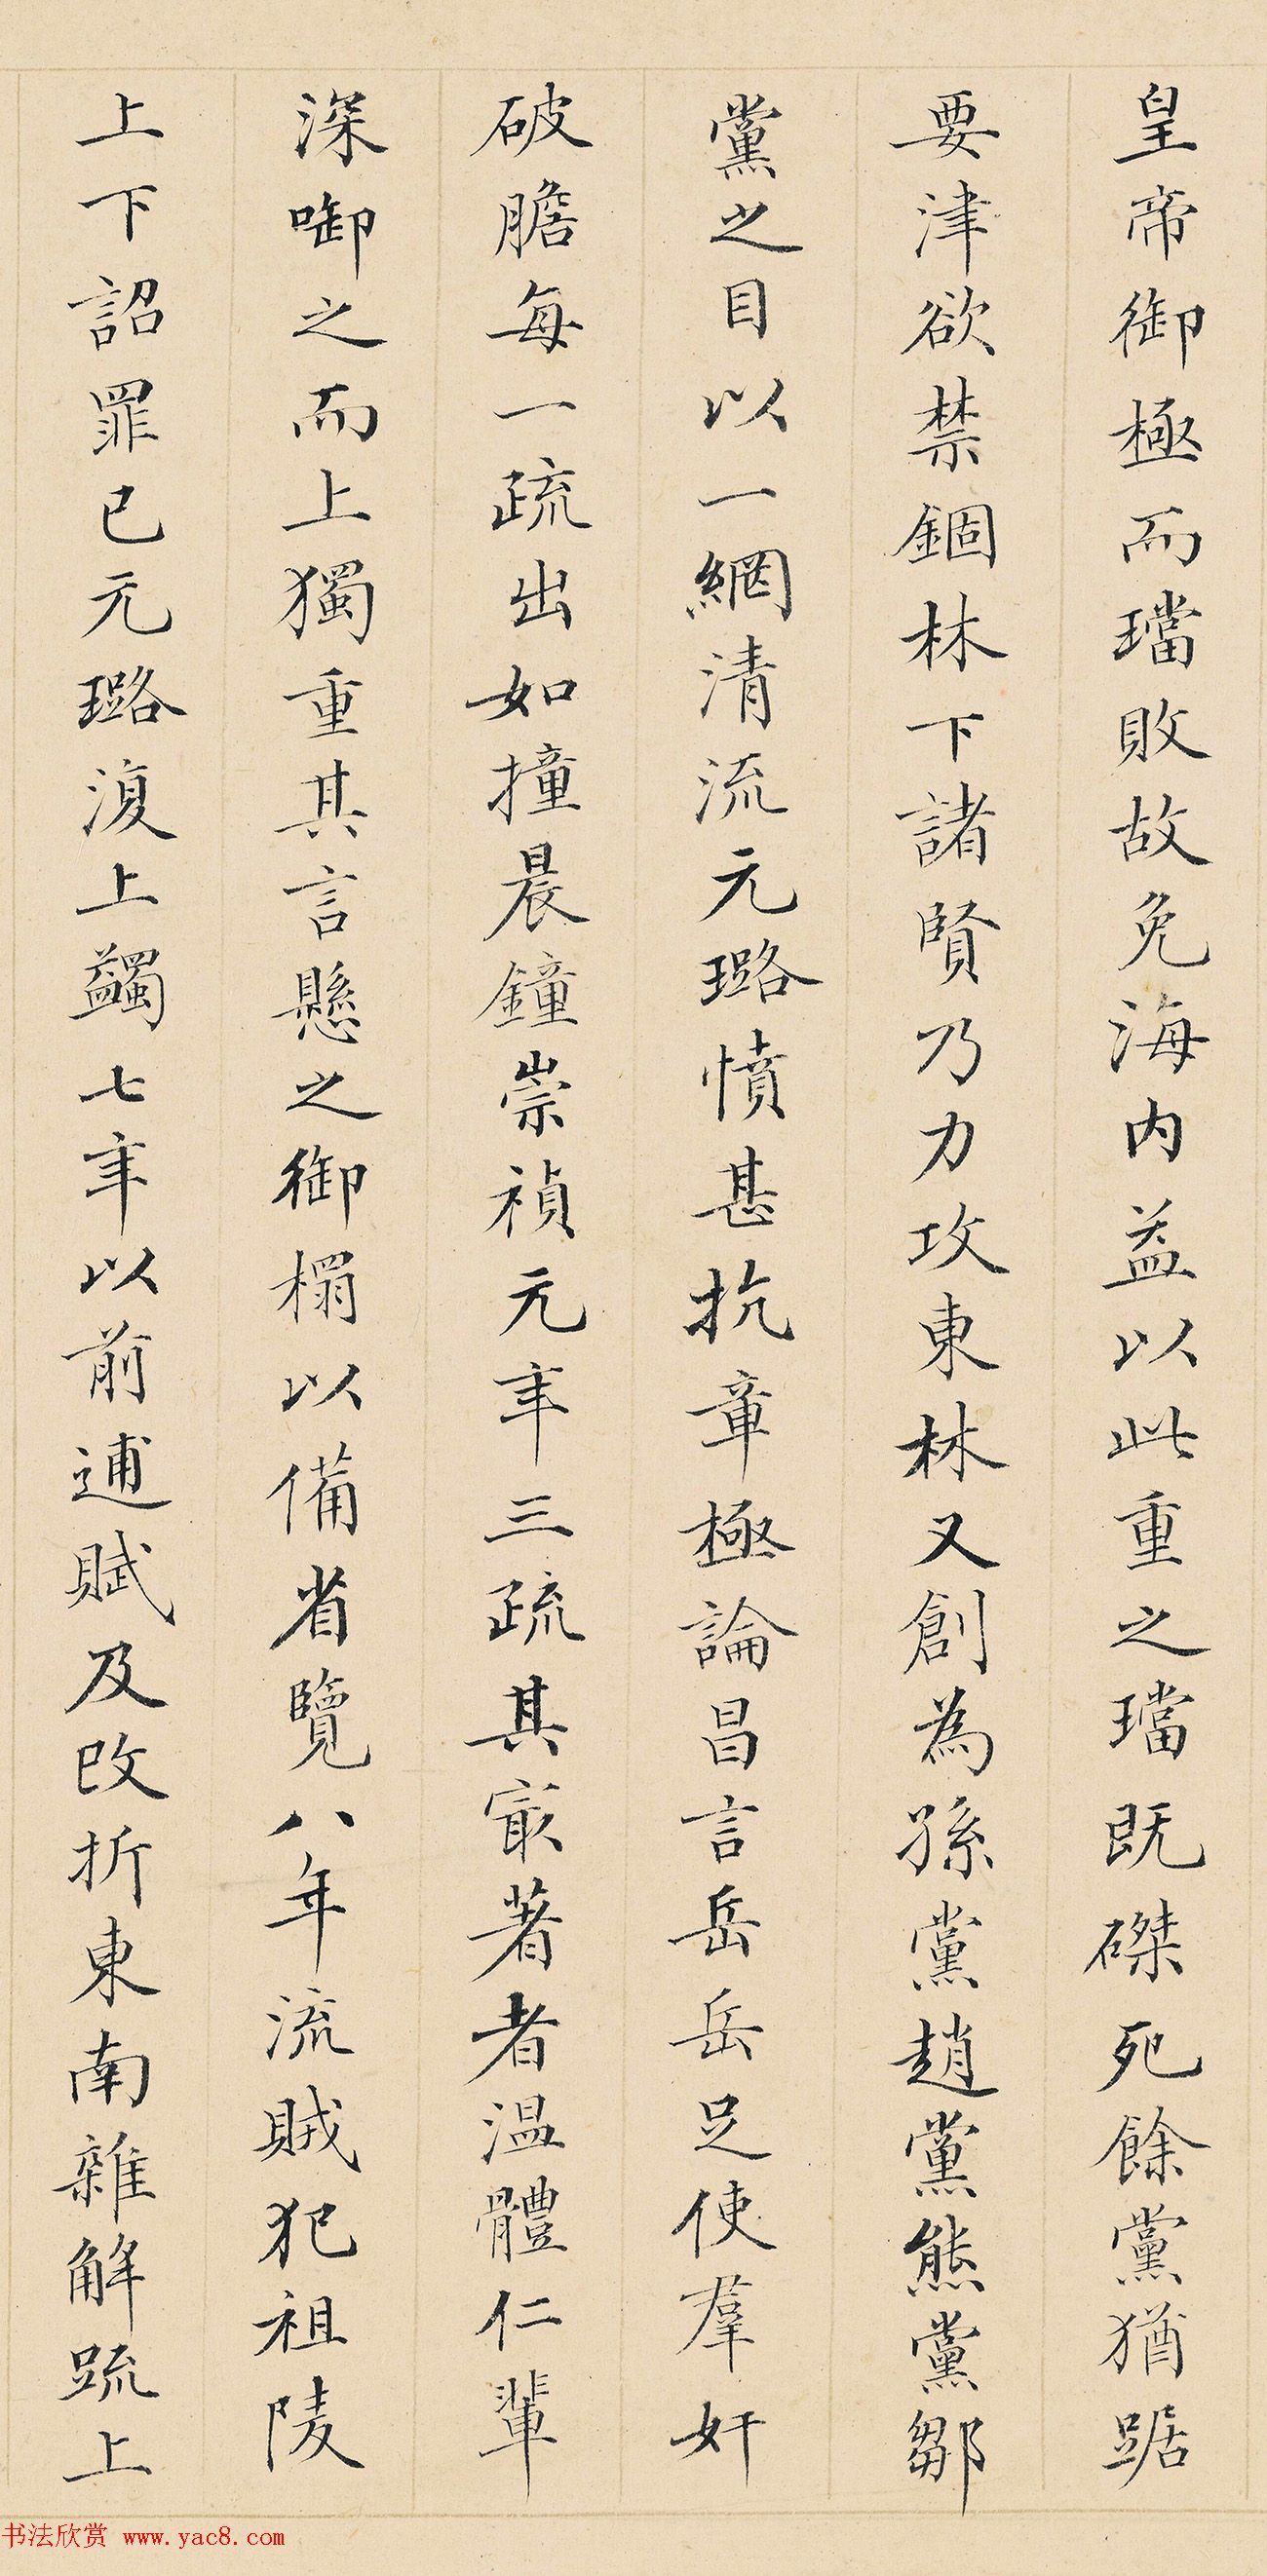 皇帝御極而璫敗故免海内益以此重之璫既磔死餘黨猶踞
要津欲禁錮林下諸賢乃力攻東林又創為孫黨趙黨熊黨鄒
黨之目以一網清流元璐憤甚抗章極論昌言岳岳足使羣奸
破膽每一疏出如撞晨鐘崇禎元年三疏其最著者温體仁輩
深啣之而上獨重其言懸之御榻以備省覽八年流賊犯祖陵
上下詔罪已元璐復上蠲七年以前逋賦及改折東南雜解疏上
书法欣赏 www.yac8.com